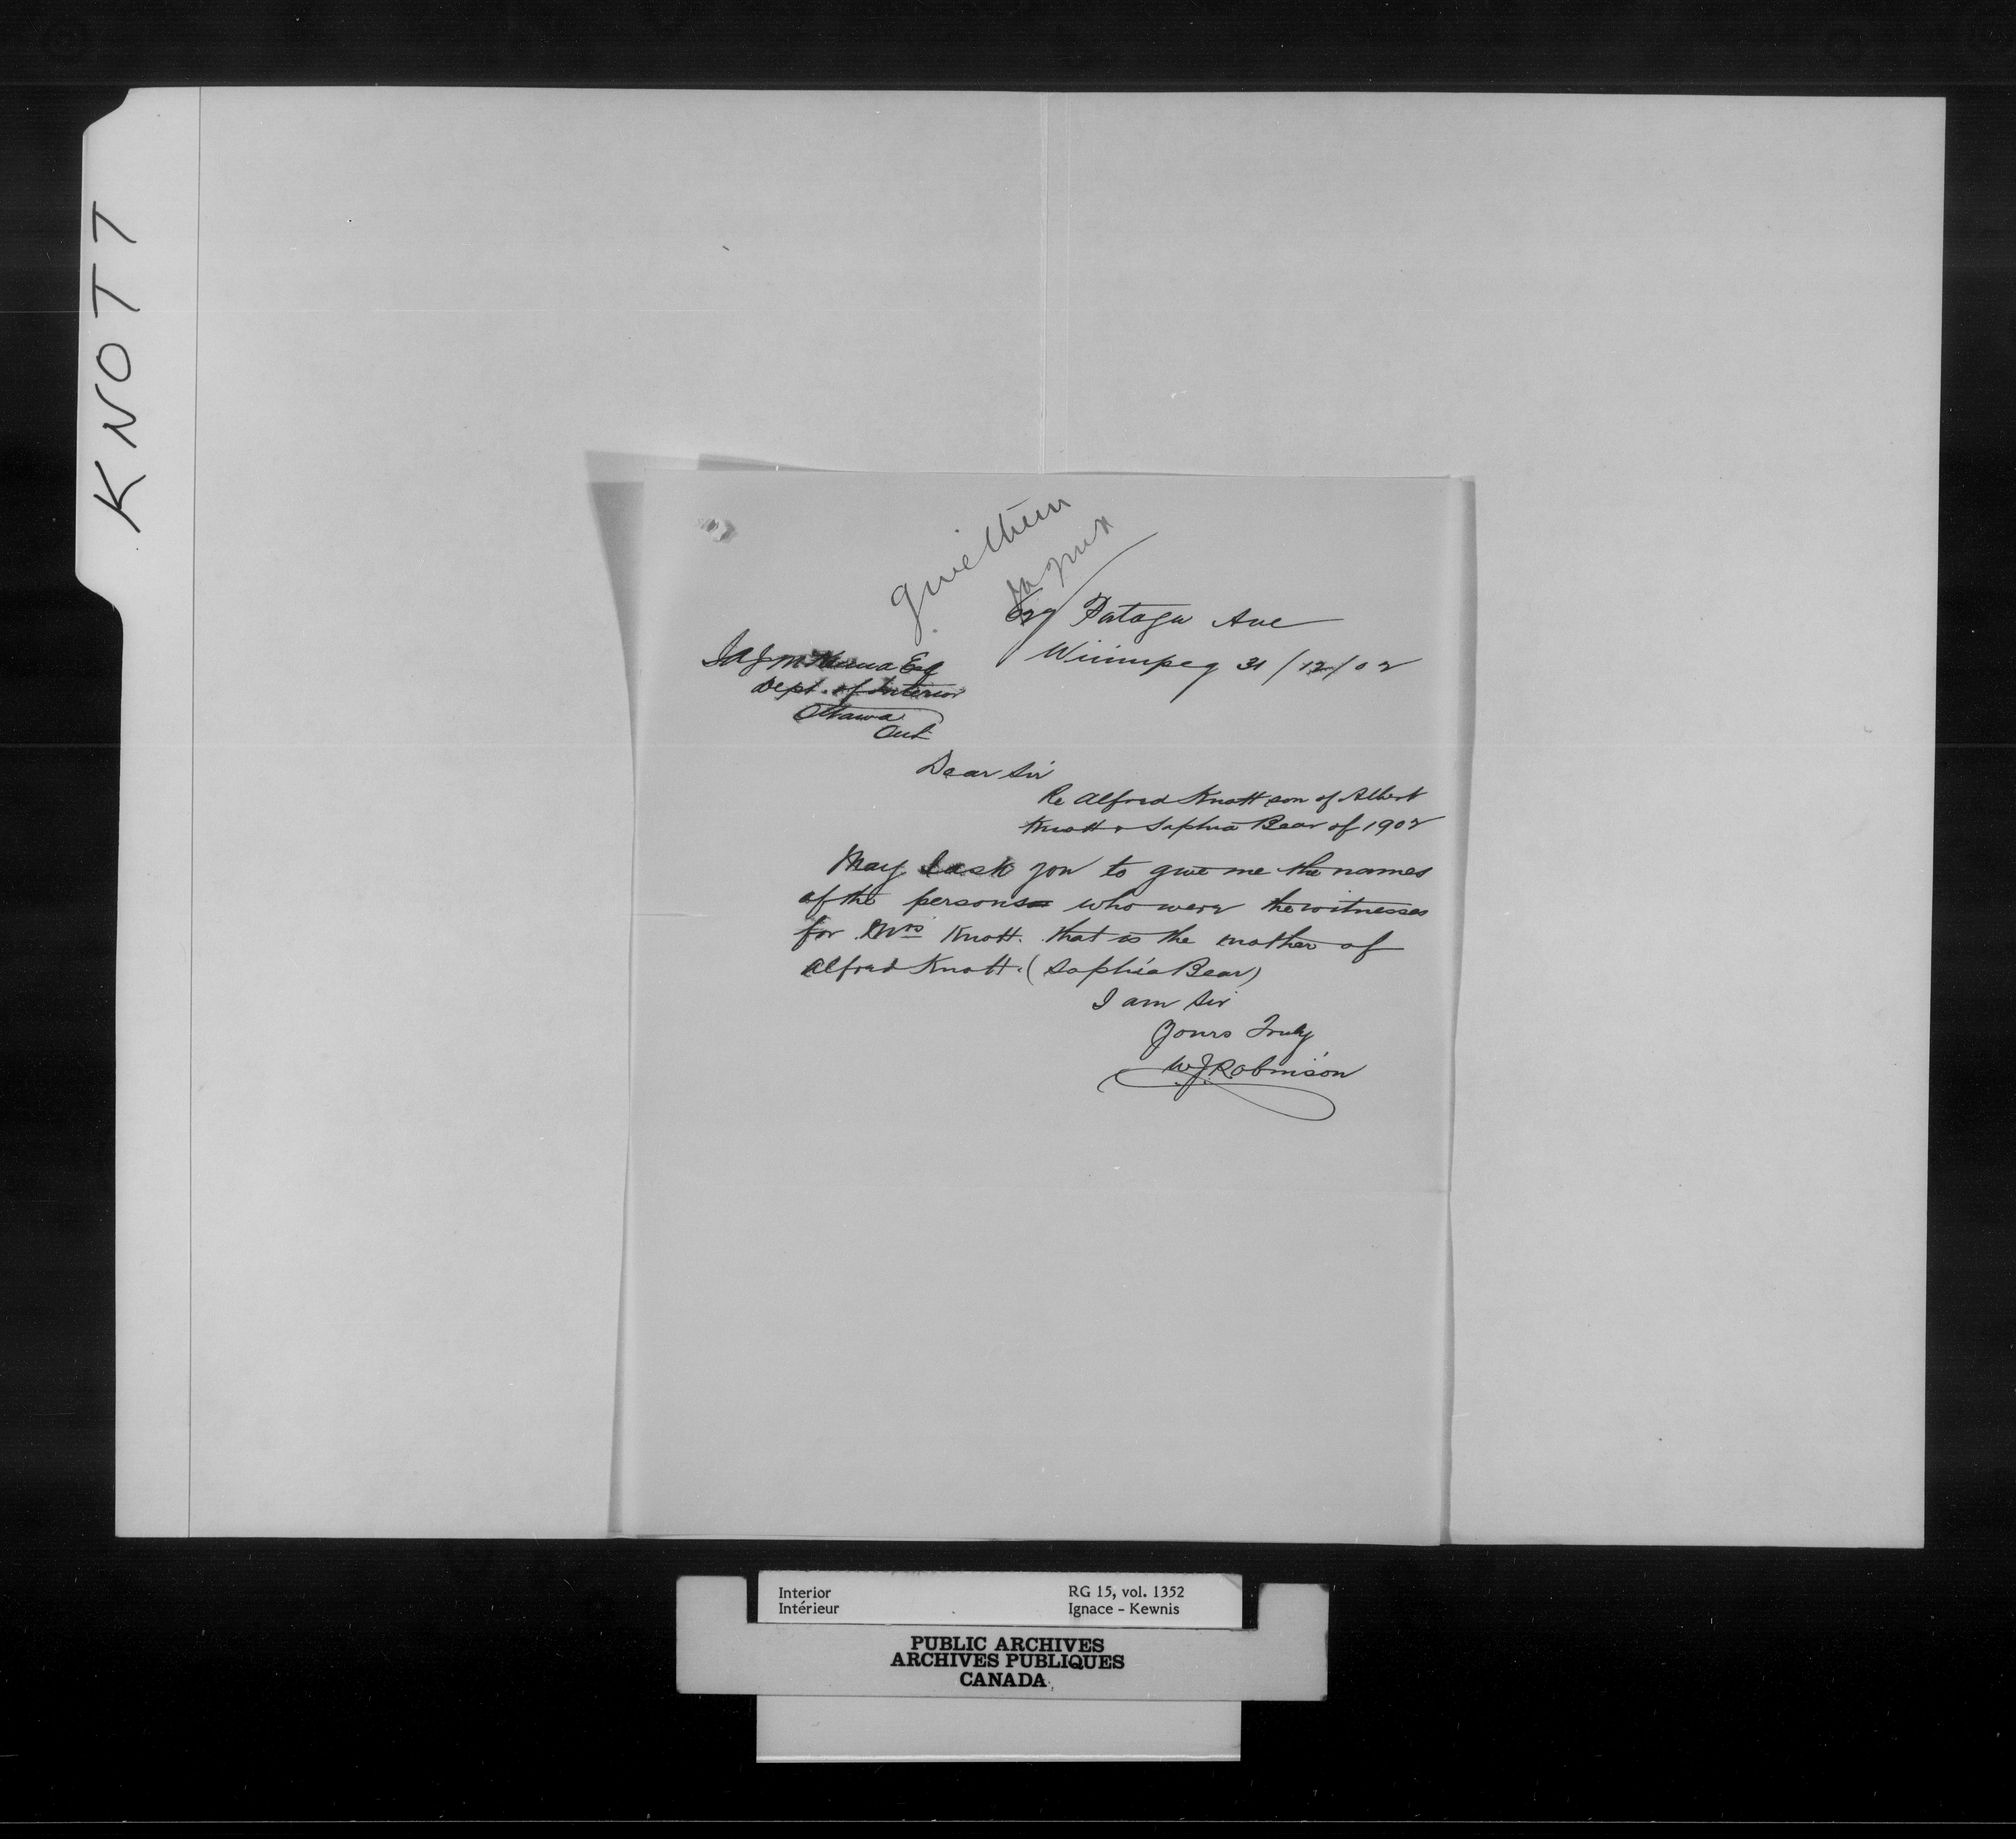 KNOTT
give them
Portage Ave
Winnipeg 31/12/02
J A J McKenna Esq
Dept. of Interior
Ottawa
Ont
Dear Sir
Re Alfred Knott son of Albert
Knott & Sophia Bear of 1902
May I ask you to give me the names
of the persons who were the witnesses
for Mrs Knott. that is the mother of
Alfred Knott. (Sophia Bear)
I am Sir
Yours Truly
W.J. Robinson
Interior
Intérieur
RG 15, vol. 1352
Ignace - Kewnis
PUBLIC ARCHIVES
ARCHIVES PUBLIQUES
CANADA